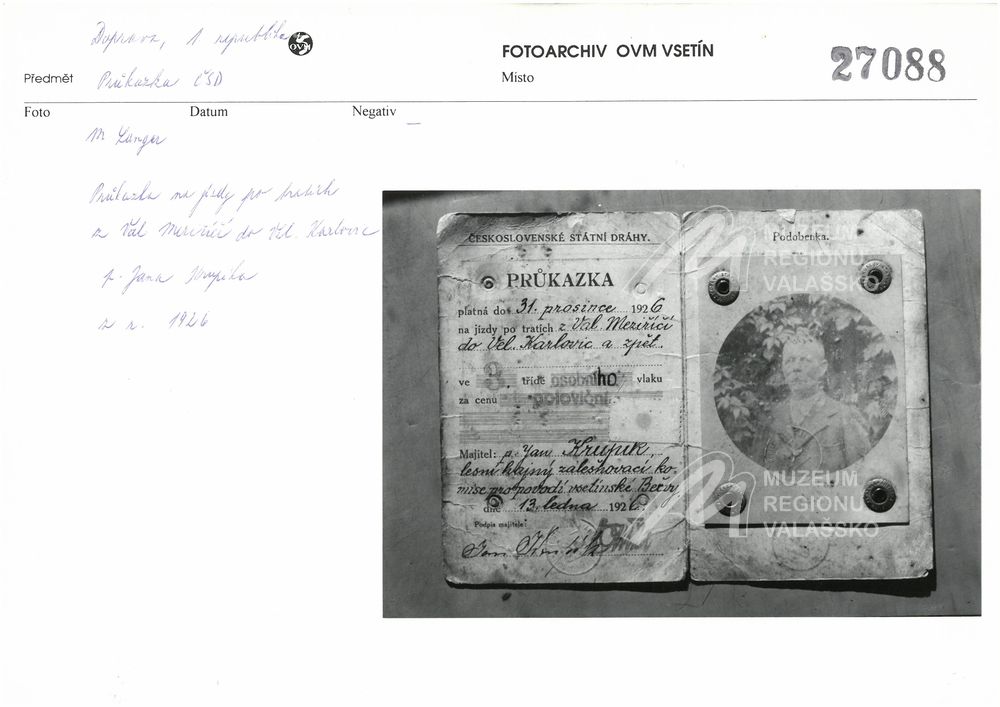 Doprava, 1 republika
OVM
FOTOARCHIV OVM VSETÍN
27088
Předmět Průkazka ČSD
Místo
Foto Datum Negativ
M Langer
Průkazka na jízdy po tratích
z Val Meziříčí do Vel. Karlovic
p. Jana Krupíka
z r. 1926
ČESKOSLOVENSKÉ STÁTNÍ DRÁHY.
PRŮKAZKA
platná do 31. prosince 1926
na jízdy po tratích z Val. Meziříčí
do Vel. Karlovic a zpět.
ve 3. třídě osobního vlaku
za cenu
Majitel: p. Jan Krupík,
lesní hajný zalesňovací ko-
mise pro povodí vsetínské Bečvy
dne 13. ledna 1926.
Podpis majitele:
Jan Krupík
Podobenka.
MUZEUM
REGIONU
VALAŠSKO
MUZEUM
REGIONU
VALAŠSKO